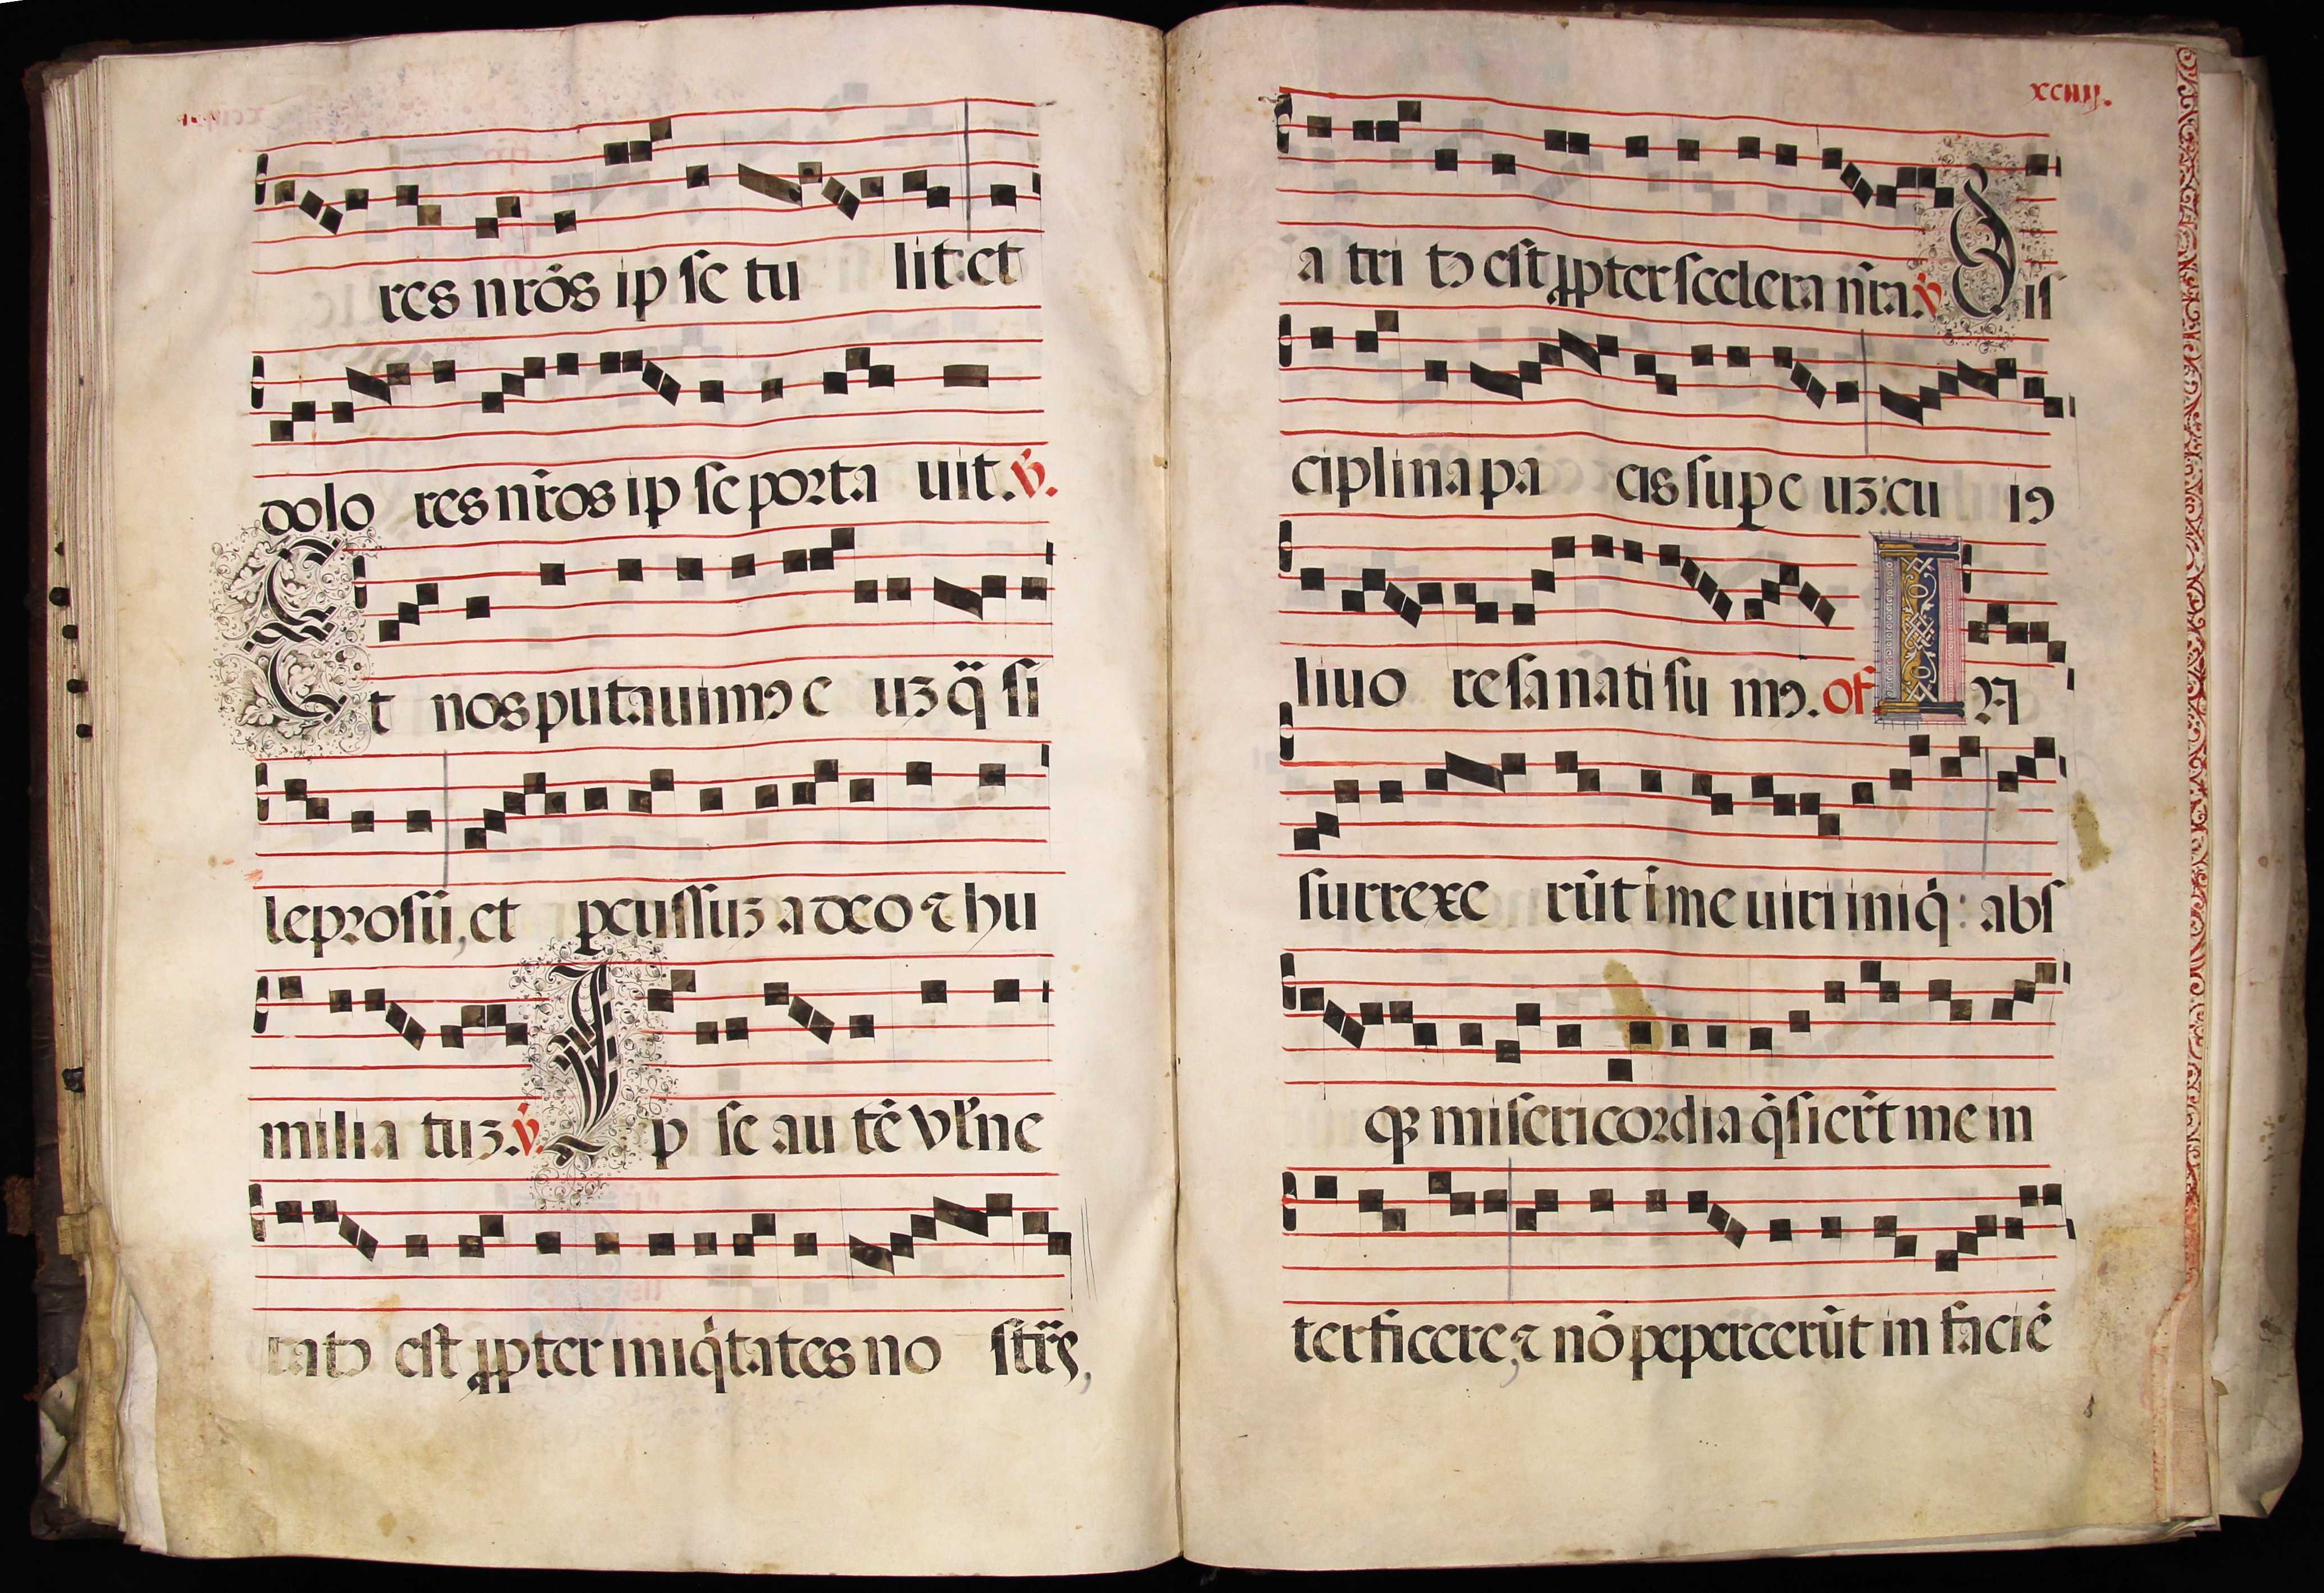 res nr̃os ip se tu lit: et
dolo res nr̃os ip se porta uit. ℣.
Et nos putauimꝰ e uꝫ q̃ si
leprosũ, et ꝑcussuꝫ a deo ⁊ hu
milia tuꝫ. ℣. Ip se au tẽ vl̃ne
ratꝰ est ꝓpter iniq̇tates no str̃s,
xciiij.
a tri tꝰ est ꝓpter scelera nr̃a. ℣ Dis
ciplina pa cis suꝑ e uꝫ: cu iꝰ
liuo re sa nati su mꝰ. Of. In
surrexe rũt ĩ me uiri iniq̇: abs
qꝫ misericordia q̃sier̃t me in
terficere, ⁊ nõ peꝑcerũt in faciẽ